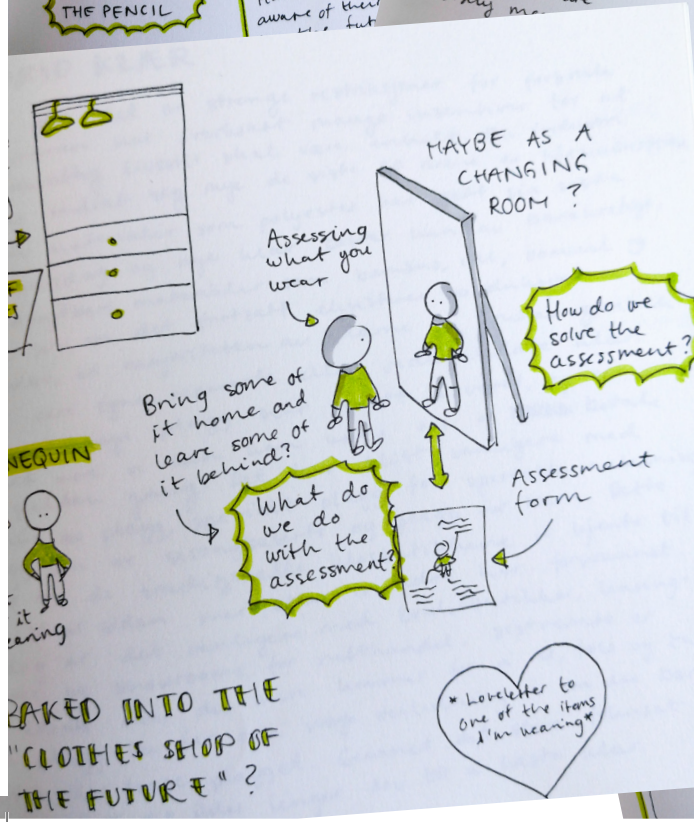 THE PENCIL
aware of their
MAYBE AS A
CHANGING
ROOM?
Assessing
what you
wear
How do we
solve the
assessment?
Bring some of
it home and
leave some of
it behind?
NEQUIN
What do
we do
with the
assessment?
Assessment
form
it
earing
BAKED INTO THE
"CLOTHES SHOP OF
THE FUTURE"?
*Loveletter to
one of the items
I'm wearing*